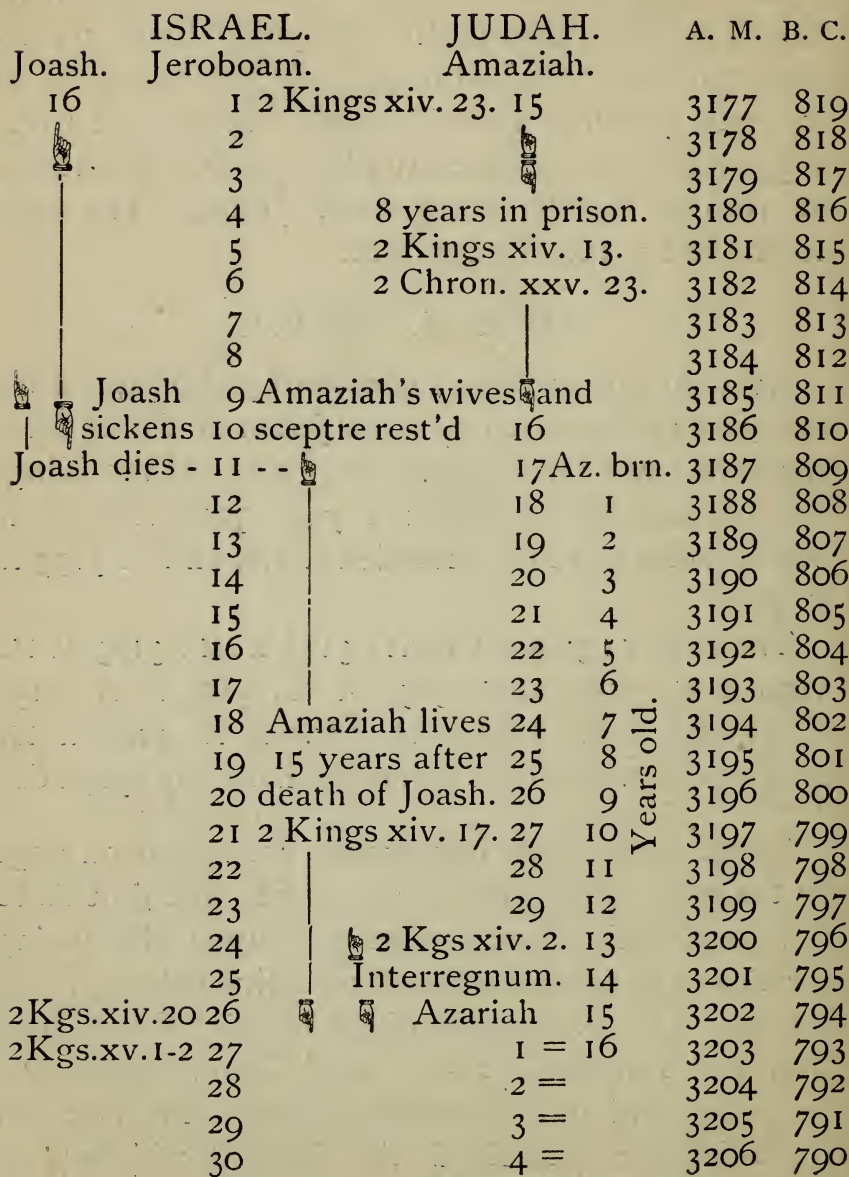 ISRAEL. JUDAH. A. M. B. C.
Joash. Jeroboam. Amaziah.
16 1 2 Kings xiv. 23. 15 3177 819
2 3178 818
3 3179 817
4 8 years in prison. 3180 816
5 2 Kings xiv. 13. 3181 815
6 2 Chron. xxv. 23. 3182 814
7 3183 813
8 3184 812
Joash 9 Amaziah's wives and 3185 811
sickens 10 sceptre rest'd 16 3186 810
Joash dies - 11 - - 17 Az. brn. 3187 809
12 18 1 3188 808
13 19 2 3189 807
14 20 3 3190 806
15 21 4 3191 805
16 22 5 3192 804
17 23 6 3193 803
18 Amaziah lives 24 7 3194 802
19 15 years after 25 8 3195 801
20 death of Joash. 26 9 3196 800
21 2 Kings xiv. 17. 27 10 3197 799
22 28 11 3198 798
23 29 12 3199 797
24 2 Kgs xiv. 2. 13 3200 796
25 Interregnum. 14 3201 795
2Kgs.xiv.20 26 Azariah 15 3202 794
2Kgs.xv.1-2 27 1 = 16 3203 793
28 2 = 3204 792
29 3 = 3205 791
30 4 = 3206 790
Years old.